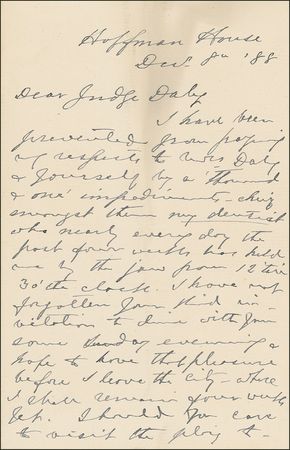 Hoffman House
Dec. 8th '88
Dear Judge Daly
I have been
prevented from paying
my respects to Mrs Daly
& yourself by a thousand
& one impediments - chief
amongst them my dentist
who nearly every day the
past four weeks has held
me by the jaw from 12 till
3 o'the clock. I have not
forgotten your kind in-
vitation to dine with you
some Sunday evening &
hope to have that pleasure
before I leave the city - where
I shall remain four weeks
yet. Should you care
to visit the play to-